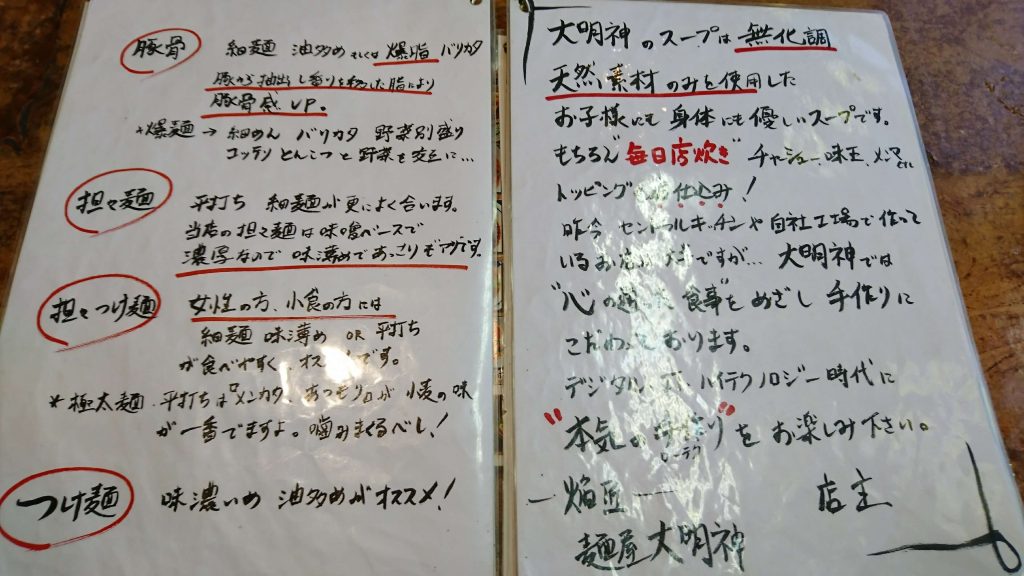 豚骨
細麺 油多め もしくは 爆脂 バリカタ
豚から抽出し香りを移した脂により
豚骨感 UP。
*爆麺 → 細めん バリカタ 野菜別盛り
コッテリとんこつと野菜を交互に…
担々麺
平打ち 細麺が更によく合います。
当店の担々麺は味噌ベースで
濃厚なので味薄めであっさりもアリです。
担々つけ麺
女性の方、小食の方には
細麺 味薄め OR 平打ち
が食べやすく、オススメです。
*極太麺、平打ちは"メンカタ、あつもり"が 小麦の味
が一番でますよ。噛みまくるべし!
つけ麺
味濃いめ 油多めがオススメ!
大明神のスープは無化調
天然素材のみを使用した
お子様にも身体にも優しいスープです。
もちろん"毎日店炊き" チャーシュー味玉、メンマ
トッピング 仕込み!
昨今 セントラルキッチンや自社工場で作って
いるお店 ですが… 大明神では
"心の 食事"をめざし手作りに
こだわっております。
デジタル、IT、ハイテクノロジー時代に
"本気の手作り"をお楽しみ下さい。
ローテク
焔
店主
麺屋 大明神